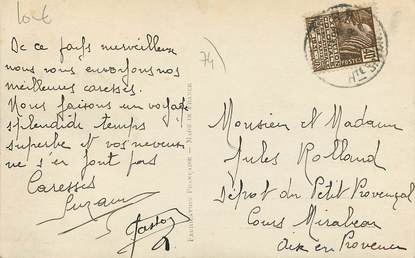 10 €
74
De ce pays merveilleux
nous vous envoyons nos
meilleures caresses.
Nous faisons un voyage
splendide, temps
superbe et vos neveux
ne s'en font pas
Caresses
Suzann
Gaston
FABRICATION FRANÇAISE - MADE IN FRANCE
POSTES
Hte S
Monsieur et Madame
Jules Rolland
Dépôt du Petit Provençal
Cours Mirabeau
Aix en Provence